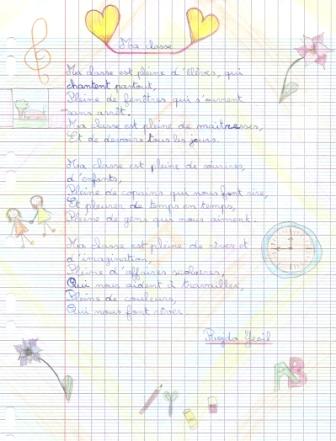 Ma classe
Ma classe est pleine d'élèves, qui
chantent partout,
Pleine de fenêtres qui s'ouvrent
sans arrêt,
Ma classe est pleine de maîtresses,
Et de devoirs tous les jours.
Ma classe est pleine de sourires,
d'enfants,
Pleine de copains qui nous font rire,
Et pleurer de temps en temps,
Pleine de gens qui nous aiment.
Ma classe est pleine de rêves et
d'imagination,
Pleine d'affaires scolaires,
Qui nous aident à travailler,
Pleins de couleurs,
Qui nous font rêver.
AB